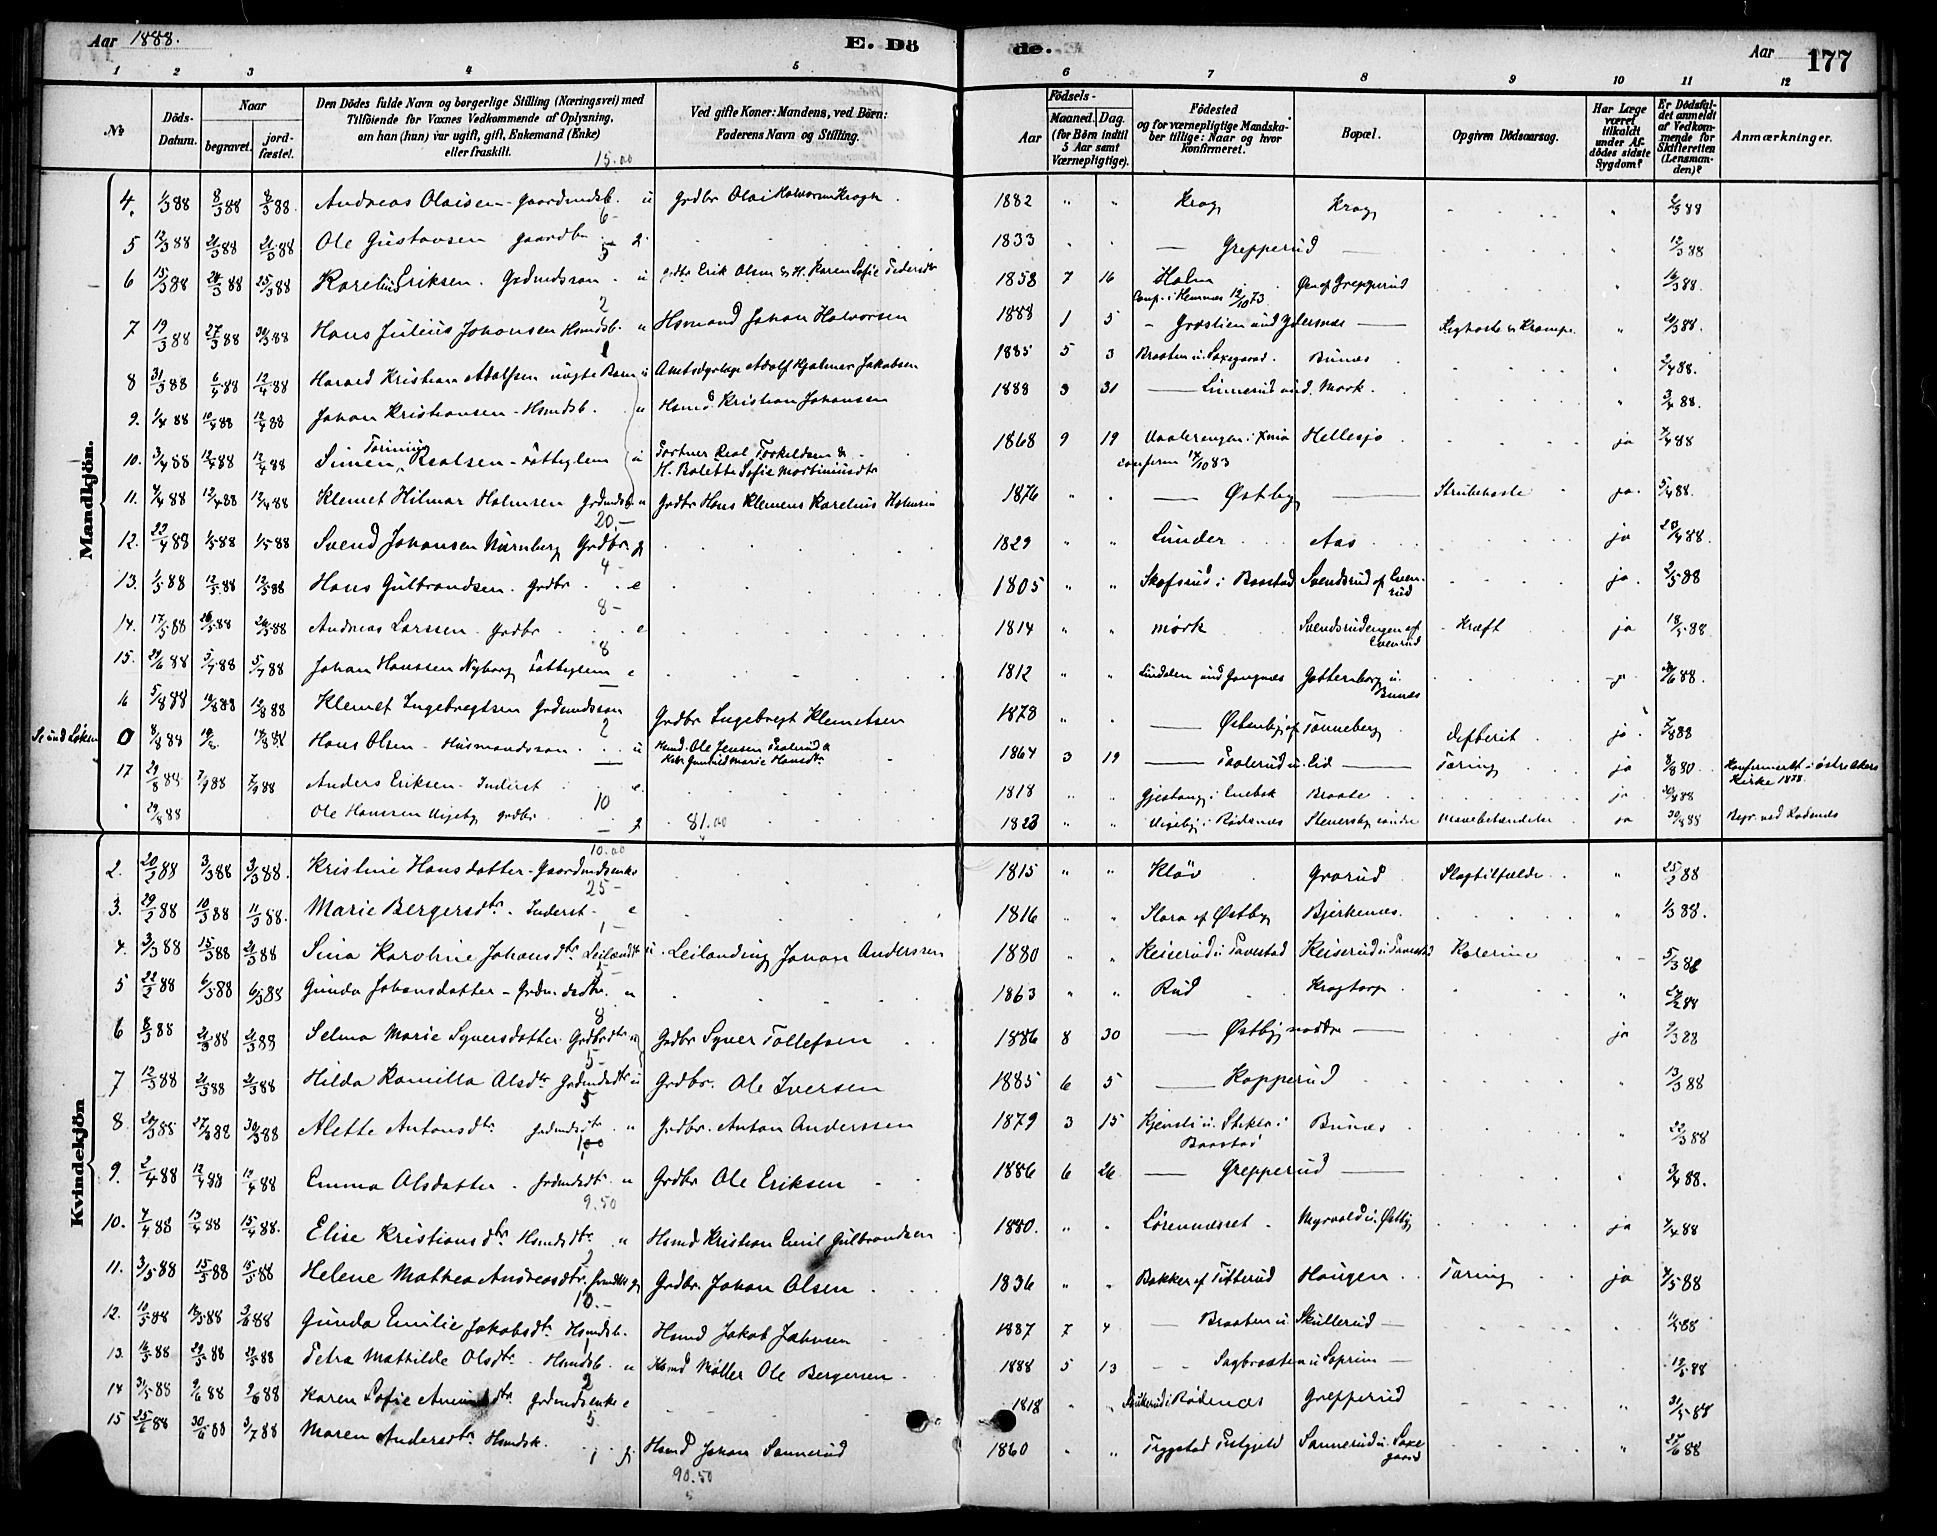 Aar 1888.
E. Dö
de.
Aar
177
1 2 3 4 5 6 7 8 9 10 11 12
No
Döds-Datum.
Naar
begravet.
jord-fæstet.
Den Dödes fulde Navn og borgerlige Stilling (Næringsvei) med
Tilföiende for Voxnes Vedkommende af Oplysning,
om han (hun) var ugift, gift, Enkemand (Enke)
eller fraskilt.
15.00
Ved gifte Koner: Mandens, ved Börn:
Faderens Navn og Stilling.
Födsels-
Aar
Maaned. Dag.
(for Børn indtil
5 Aar samt
Værnepligtige).
Födested
og for værnepligtige Mandska-
ber tillige: Naar og hvor
konfirmeret.
Bopæl.
Opgiven Dödsaarsag.
Har Læge
været
tilkaldt
under Af-
dödes sidste
Sygdom?
Er Dödsfal-
det anmeldt
af Vedkom-
mende for
Skifteretten
(Lensman-
den)?
Anmærkninger.
Mandkjön.
4. 1/3 88 8/3 88 8/3 88. Andreas Olaisen - gaardmdsb. u Grdbr Olai Halvorsen Krogh 1882 " " Krog Krog " 2/3 88
6-
5 12/3 88 21/3 88 21/3 88 Ole Gustavsen gaardbr. g. 1833 Grepperud 12/3 88
5
6 15/3 88 24/3 88 25/3 88 Karelius Eriksen. Grdmdssøn. u grdbr Erik Olsen & H. Karen Sofie Pedersdtr 1858 7 16 Holm Øen af Grepperud 16/3 88.
Conf. i Hemnes 12/10 73
2
7 19/3 88 27/3 88 30/3 88 Hans Julius Johansen Hsmdsb. u Hsmand Johan Halvorsen 1888 1 5 - Græstien und Ydersnes Kighoste & Krampe " 20/3 88.
1
8 31/3 88 6/4 88 12/4 88 Harald Kristian Adolfsen uægte Barn u Amtsdyrlæge Adolf Hjalmar Jakobsen 1885 5 3 Braaten u. Saxegaard. Bunæs 2/4 88.
9. 1/4 88 10/4 88 12/4 88 Johan Kristiansen - Hsmdsb. u Hsmd. Kristian Johansen 1888 3 31 Linnerud und. Mork. " 3/4 88.
10. 3/4 88 12/4 88 12/4 88 Simen Realsen - Fattiglem u Portner Real Torkildsen & 1868 9 19 Vaalerengen i Xnia Hellesjø ja 7/4 88
H. Bolette Sofie Mortiniusdtr confirm 14/10 83
11. 4/4 88 12/4 88 12/4 88 Klemet Hilmar Holmsen Grdmdsb. u Grdbr Hans Klemens Karelius Holmsen 1876 " " Østby Strubehoste ja. 5/4 88.
20.-
12. 22/4 88 1/5 88 1/5 88 Svend Johansen Nürnberg Grdbr g 1829 " " Lunder Aas ja 23/4 88.
4-
13. 1/5 88 12/5 88 12/5 88 Hans Gulbrandsen. grdbr. e 1805 " " Skofsrud i Baastad Svendsrud af Even-rud ja. 2/5 88
8-
14. 17/5 88 26/5 88 26/5 88 Andreas Larssen. grdbr e 1814 " " Mørk Svendsrudengen af Evenrud Kræft ja 18/5 88
8
15. 29/6 88 5/7 88 5/7 88 Johan Hanssen Nyborg Fattiglem e 1812 " " Lindalen und Gangnæs Gottenborg u. Bunæs 30/6 88.
16 5/8 88 12/8 88 12/8 88 Klemet Ingebregtsen Grdmandssøn Grdbr Ingebregt Klemetsen 1878 " " Østenby af Tønneberg Defterit ja 7/8 88
2
Se und Løken 0 8/8 88 Hans Olsen - Husmandssøn. u Hsmd. Ole Jensen Taalerud & 1864 3 19 Taalerud u. Eid Tæring ja 8/8 80. Konfirmeret i Østre Akers
Kirke 1878.
Kvr Gunhild Marie Hansdtr
17 29/8 88 7/9 88 7/9 88 Anders Eriksen - Inderst e. 1818 " " Gjestang i Enebak Braate ja. 30/8 88
" 29/8 88 Ole Hanssen Vigeby grdbr 10 g 81.00 1823 " " Vigeby i Rødenæs Stenersby søndre Mavebetændelse ja 30/8 88 Begr. ved Rødenes
Kvindekjön
10.00
2. 20/2 88 3/3 88 3/3 88. Kristine Hansdatter - Gaardmdsenke 1815 " " Kløv Grorud Slagtilfælde " 25/2 88
25-
3. 29/2 88 10/3 88 11/3 88. Marie Bergersdtr. Inderst e 1816 " " Slora af Østby Bjerkenæs. " 1/3 88.
1-
4. 3/3 88 15/3 88 21/3 88 Sina Karoline Johansdtr. Leilændtr u. Leilænding Johan Anderssen 1880 " " Keiserud u Tavestad Keiserud u Tavestad Kolerine " 5/3 88
5 22/2 88 6/3 88 6/3 88 Gunda Johansdatter - Grdmdsdtr. u 1863 " " Rud Krogtorp " 24/2 88
8
6 8/3 88 21/3 88 21/3 88 Selma Marie Syversdatter Grdbrdtr u Grdbr Syver Tollefsen 1886 8 30 Østby nordre ja 9/3 88
5-
7 12/3 88 21/3 88 21/3 88 Hilda Kamilla Olsdtr Grdmdsdtr u Grdbr. Ole Iversen 1885 6 5 Kopperud " 13/3 88
5
8. 20/3 88 27/3 88 30/3 88 Alette Antonsdtr grdmdsdtr. u Grdbr. Anton Anderssen 1879 3 15 Kjensli u. Stikla i Baastad Bunæs " 22/3 88
1.00
9. 2/4 88 12/4 88 12/4 88 Emma Olsdatter. Grdmdsdtr. u Grdbr Ole Eriksen 1886 6 26 Grepperud 3/4 88.
9.50
10. 7/4 88 13/4 88 15/4 88. Elise Kristiansdtr. Hsmdsdtr. u Hsmd Kristian Emil Gulbrandsen 1880. " " Lørennæsset Myrvold u. Østby ja 7/4 88
2
11. 3/5 88 15/5 88 15/5 88 Helene Mathea Andreasdtr. Grmdk g Grdbr. Johan Olsen 1836 " " Bakker af Titterud Haugen Tæring ja 4/5 88
10.-
12. 10/5 88 16/5 88 3/6 88 Gunda Emilie Jakobsdtr. Hsmdsb. Hsmd Jakob Jahnsen 1887 7 4 Braaten u Skullerud 11/5 88
13. 16/5 88 29/5 88 29/5 88 Petra Mathilde Olsdtr. Hsmdsb. u Hsmd Møller Ole Bergersen 1888 5 13 Sagbraaten u Soprim 19/5 88
2
14 31/5 88 9/6 88 9/6 88 Karen Sofie Amundsdtr grdmdsenke e 1818 " " i Rødenæs Grepperud " 31/5 88
5.
15 25/6 88 30/6 88 3/7 88 Maren Andersdtr. Hsmdsk. 1 g Hsmd Johan Sannerud 1860 " " Trygstad Prstgjeld Sannerud u. Saxe-gaard " 27/6 88
90.50
5